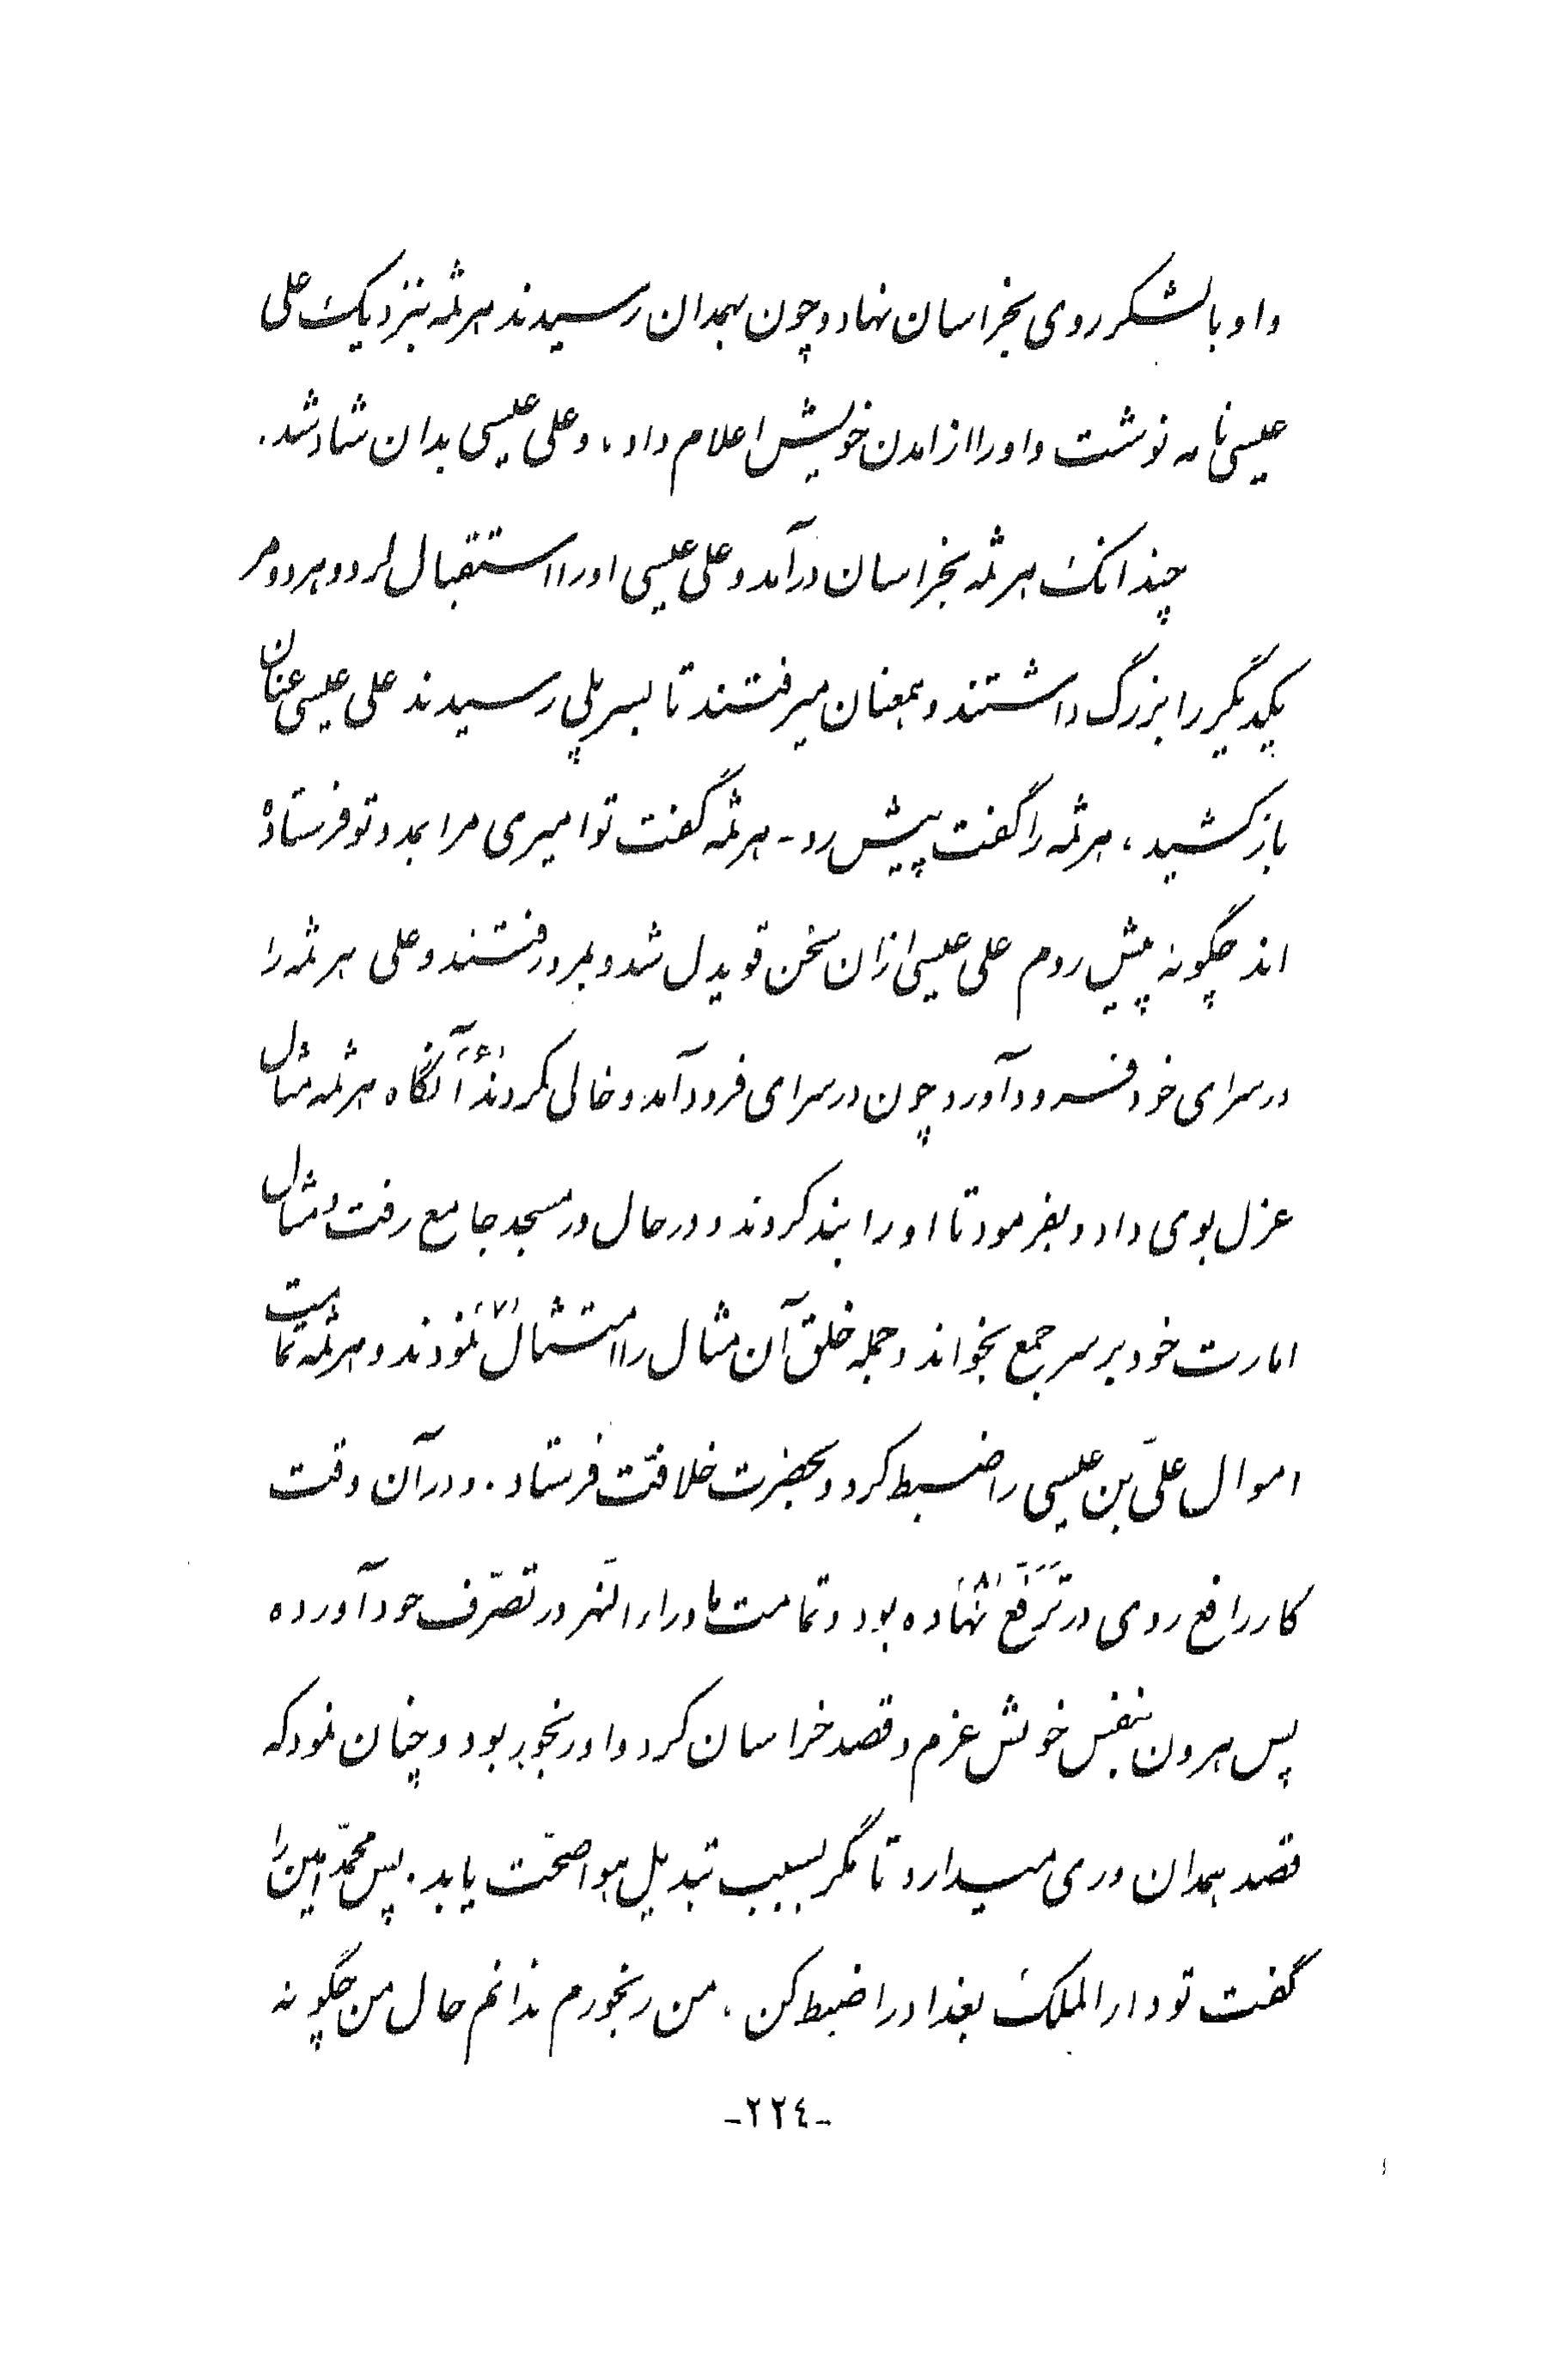 و او با لشکر روی بخراسان نهاد و چون بهمدان رسیدند هرثمه بنزدیک علی
عیسی نامه نوشت و او را از امدن خویش اعلام داد، و علی عیسی بدان شاد شد.
چندانک هرثمه بخراسان درآمد و علی عیسی او را استقبال کرد و هر دو مر
یکدیگر را بزرگ داشتند و همعنان میرفتند تا بسر پلی رسیدند علی عیسی عنان
باز کشید، هرثمه را گفت پیش رو - هرثمه گفت تو امیری مرا بمدد تو فرستاده
اند چگونه پیش روم علی عیسی ازان سخن قویدل شد و بمرو رفتند و علی هرثمه را
در سرای خود فرود آورد چون در سرای فرود آمد و خالی کردند (٦) آنگاه هرثمه مثال
عزل بوی داد و بفرمود تا او را بند کردند و در حال در مسجد جامع رفت و مثال
امارت خود بر سر جمع بخواند و جمله خلق آن مثال را امتثال (٧) نمودند و هرثمه تمامیت
اموال علیّ بن عیسی را ضبط کرد و بحضرت خلافت فرستاد. و در آن وقت
کار رافع روی در تَرَفَّع (٨) نهاده بود و تمامت ماوراء النهر در تصرّف خود آورده
پس هرون بنفس خویش عزم و قصد خراسان کرد و او رنجور بود و چنان نمود که
قصد همدان و ری میدارد تا مگر بسبب تبدیل هوا صحّت یابد. پس محمّد امین را
گفت تو دار الملک بغداد را ضبط کن، من رنجورم ندانم حال من چگونه
-٢٢٤-